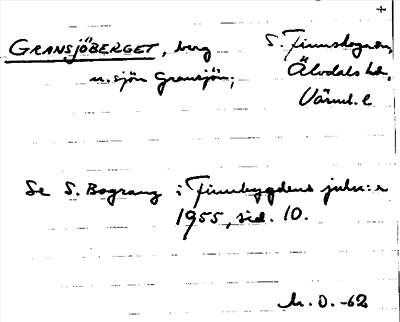 GRANSJÖBERGET, berg S. Finnskogen,
n. sjön Gransjön; Älvdals hd,
Värml. l.
Se S. Bograng i Finnbygdens julnr
1955, sid. 10.
M. O. -62